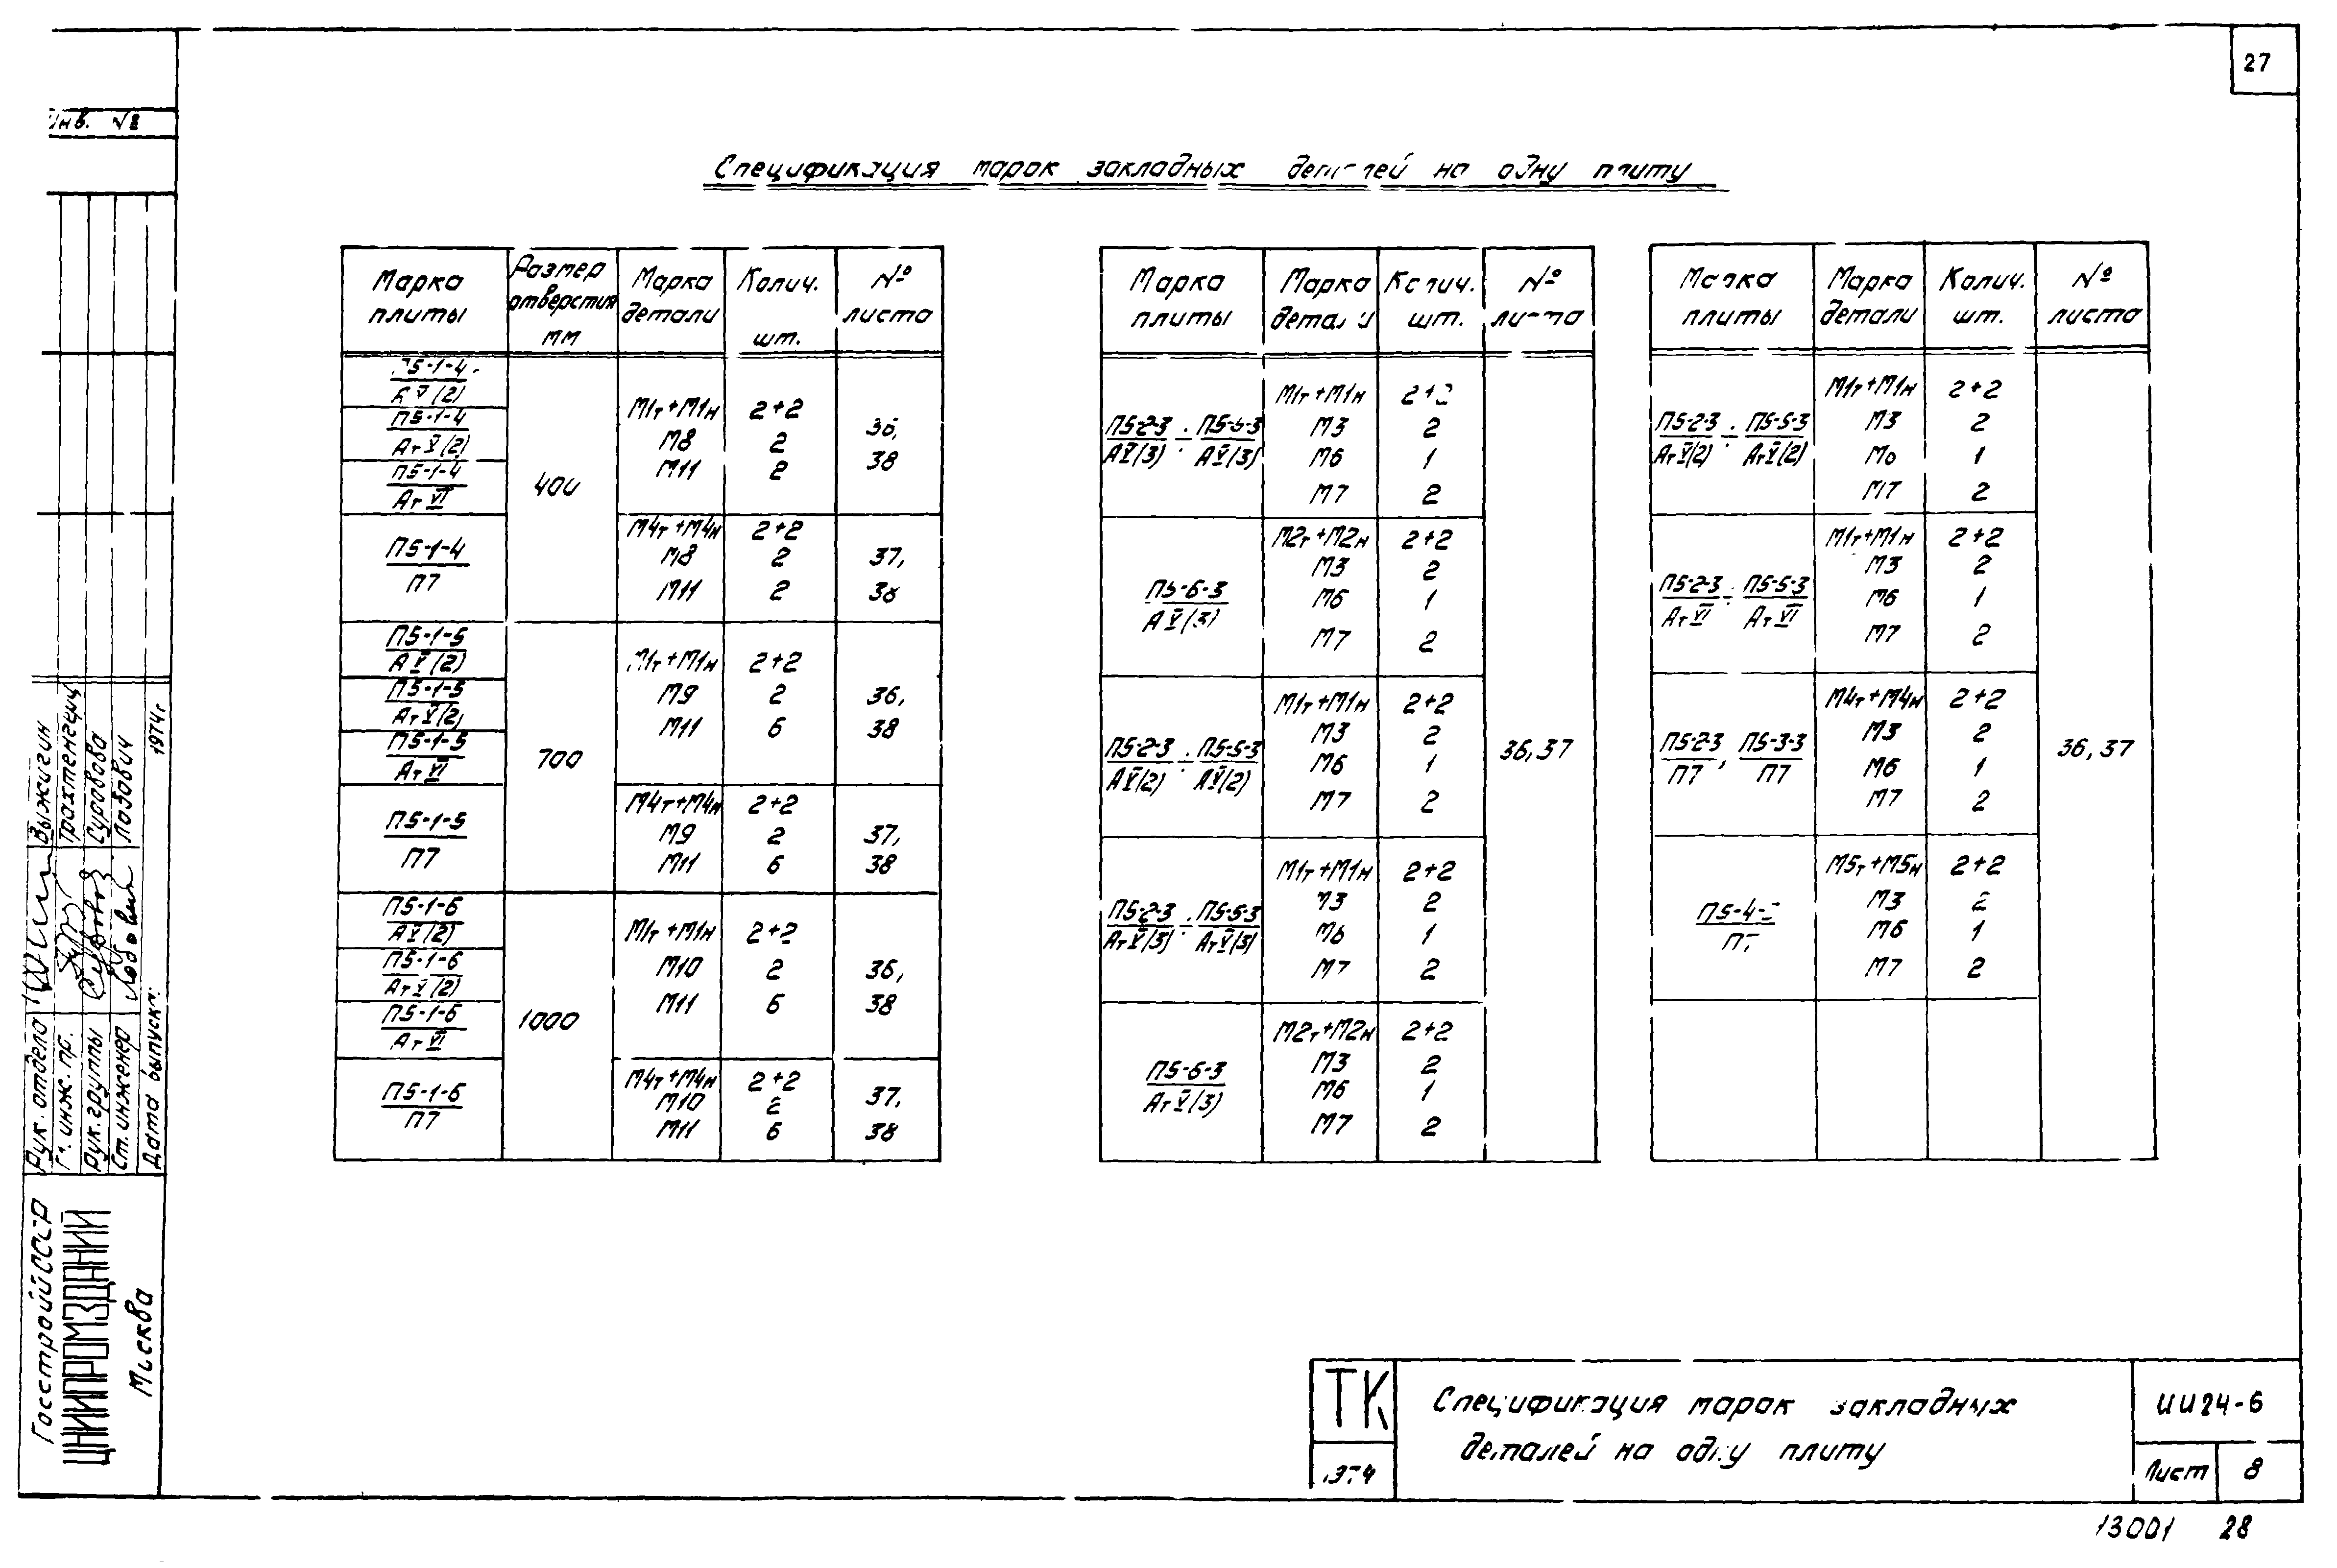 27
Инв. №
Спецификация марок закладных деталей на одну плиту
Марка плиты | Размер отверстия мм | Марка детали | Колич. шт. | № листа
П5-1-4 / АV(2)
П5-1-4 / АтV(2)
П5-1-4 / АтVI
400
М1т+М1н 2+2
М8 2
М11 2
36, 38
П5-1-4 / П7
М4т+М4н 2+2
М8 2
М11 2
37, 38
П5-1-5 / АV(2)
П5-1-5 / АтV(2)
П5-1-5 / АтVI
700
М1т+М1н 2+2
М9 2
М11 6
36, 38
П5-1-5 / П7
М4т+М4н 2+2
М9 2
М11 6
37, 38
П5-1-6 / АV(2)
П5-1-6 / АтV(2)
П5-1-6 / АтVI
1000
М1т+М1н 2+2
М10 2
М11 6
36, 38
П5-1-6 / П7
М4т+М4н 2+2
М10 2
М11 6
37, 38
Марка плиты | Марка детали | Колич. шт. | № листа
П5-2-3 / АV(3) ÷ П5-5-3 / АV(3)
М1т+М1н 2+2
М3 2
М6 1
М7 2
П5-6-3 / АV(3)
М2т+М2н 2+2
М3 2
М6 1
М7 2
П5-2-3 / АV(2) ÷ П5-5-3 / АV(2)
М1т+М1н 2+2
М3 2
М6 1
М7 2
36, 37
П5-2-3 / АтV(3) ÷ П5-5-3 / АтV(3)
М1т+М1н 2+2
М3 2
М6 1
М7 2
П5-6-3 / АтV(3)
М2т+М2н 2+2
М3 2
М6 1
М7 2
Марка плиты | Марка детали | Колич. шт. | № листа
П5-2-3 / АтV(2) ÷ П5-5-3 / АтV(2)
М1т+М1н 2+2
М3 2
М6 1
М7 2
П5-2-3 / АтVI ÷ П5-5-3 / АтVI
М1т+М1н 2+2
М3 2
М6 1
М7 2
П5-2-3 / П7, П5-3-3 / П7
М4т+М4н 2+2
М3 2
М6 1
М7 2
36, 37
П5-4-3 / П7
М5т+М5н 2+2
М3 2
М6 1
М7 2
Рук. отдела Выжигин
Гл. инж. пр. Трахтенгерц
Рук. группы Суровова
Ст. инженер Лобович
Дата выпуска: 1974г
Госстрой СССР
ЦНИИПРОМЗДАНИЙ
Москва
ТК
1974
Спецификация марок закладных
деталей на одну плиту
ИИ24-6
Лист 8
13001 28